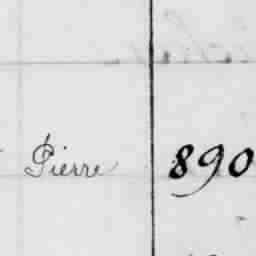 Pierre 890